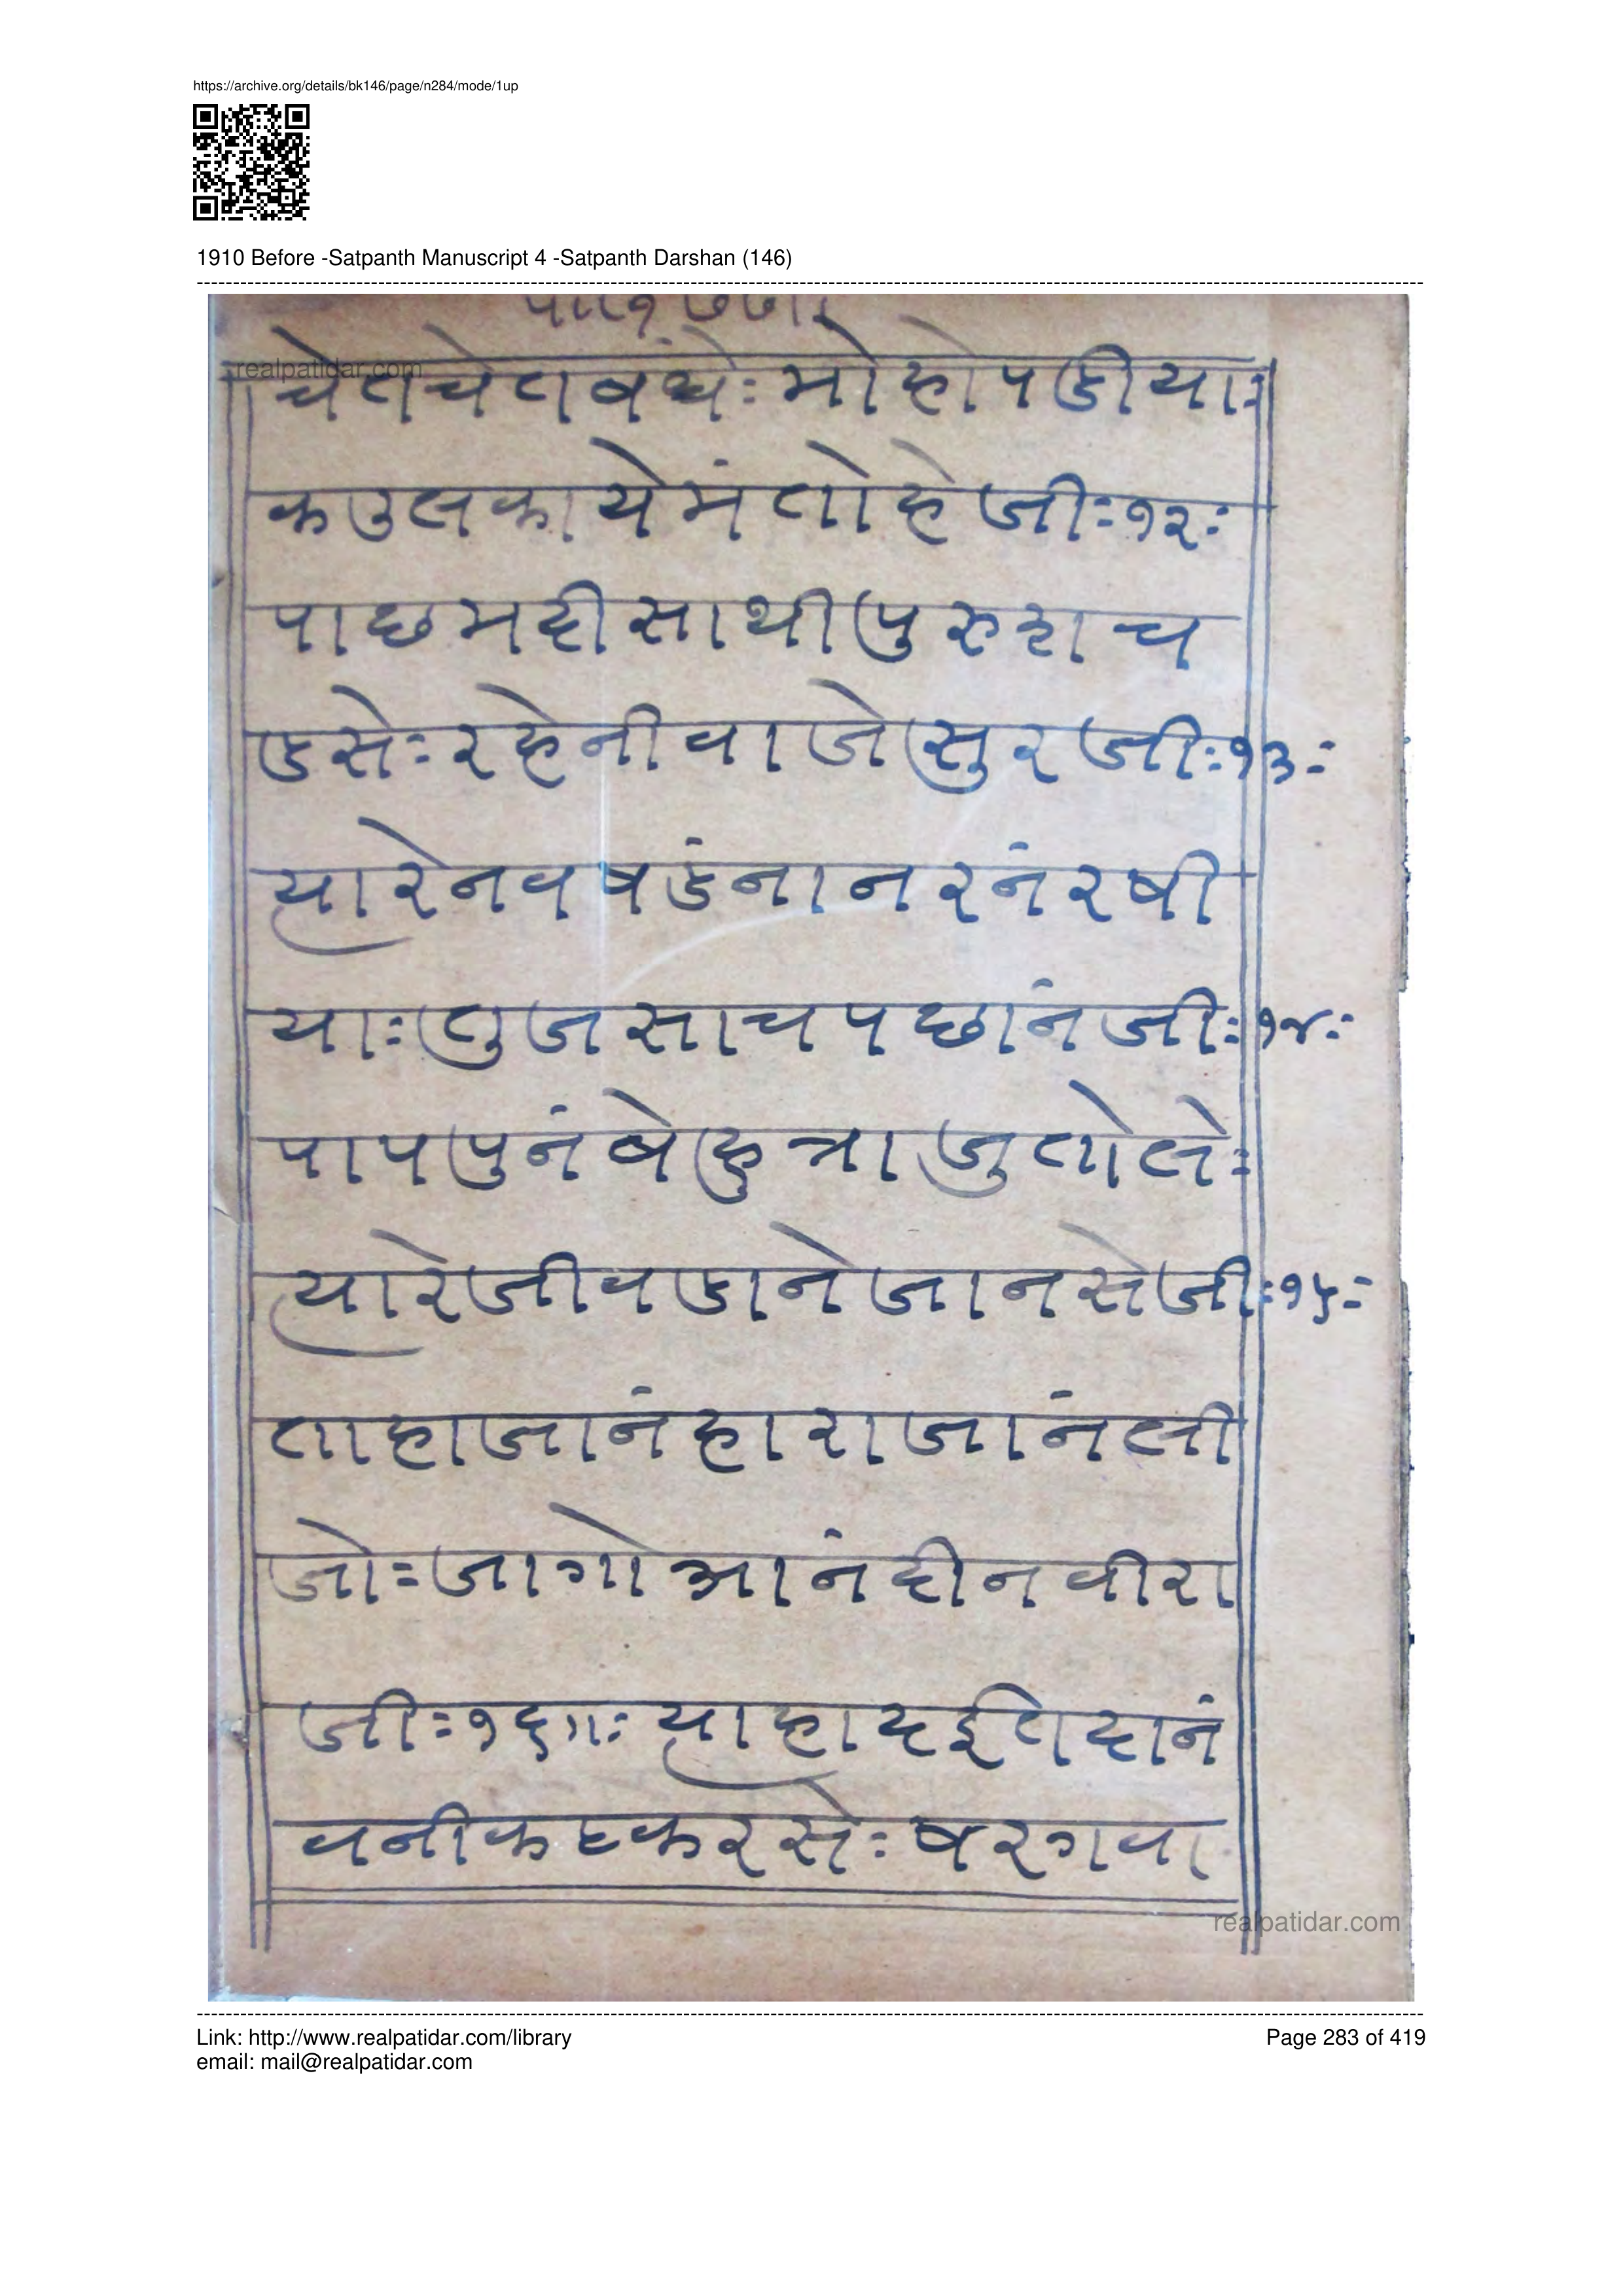 https://archive.org/details/bk146/page/n284/mode/1up
1910 Before -Satpanth Manuscript 4 -Satpanth Darshan (146)
realpatidar.com
चेतचेतबंधेः मोहोपडीयाः
कउलकायेमं तोहेजीः१२ः
पाछमदीसाथीपुरुशच
डसेः रहेनीवाजेसुरजीः१३ः
त्यारेनवषडंनानरनंरषी
याः तुजसाचपछांनजीः१४ः
पापपुनंबेहुत्राजुतोलेः
त्यारेजीवडानेजानसेजीः१५ः
ताहाजानंहाराजांनली
जोः जागोआनंदीनवीरा
जीः१६॥ः त्याहादईतदानं
वनीकष्टकरसेः षरगवा
realpatidar.com
Link: http://www.realpatidar.com/library
Page 283 of 419
email: mail@realpatidar.com